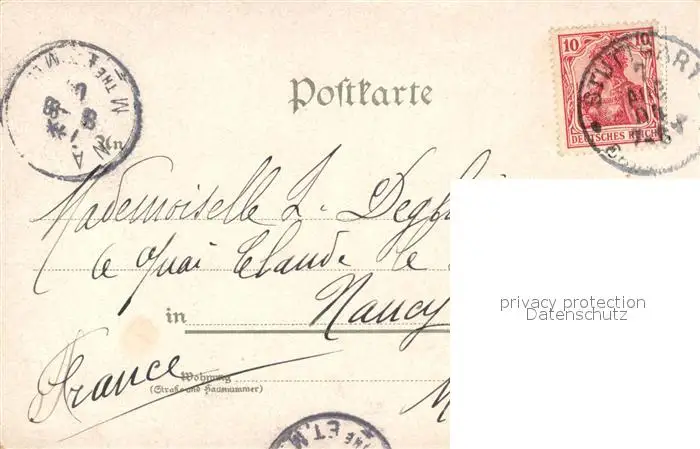 10 10
DEUTSCHES REICH
STUTTGART
Postkarte
An
Mademoiselle L.
6 Quai Claude le
in Nancy
France
Wohnung
(Straße und Hausnummer)
privacy protection
Datenschutz